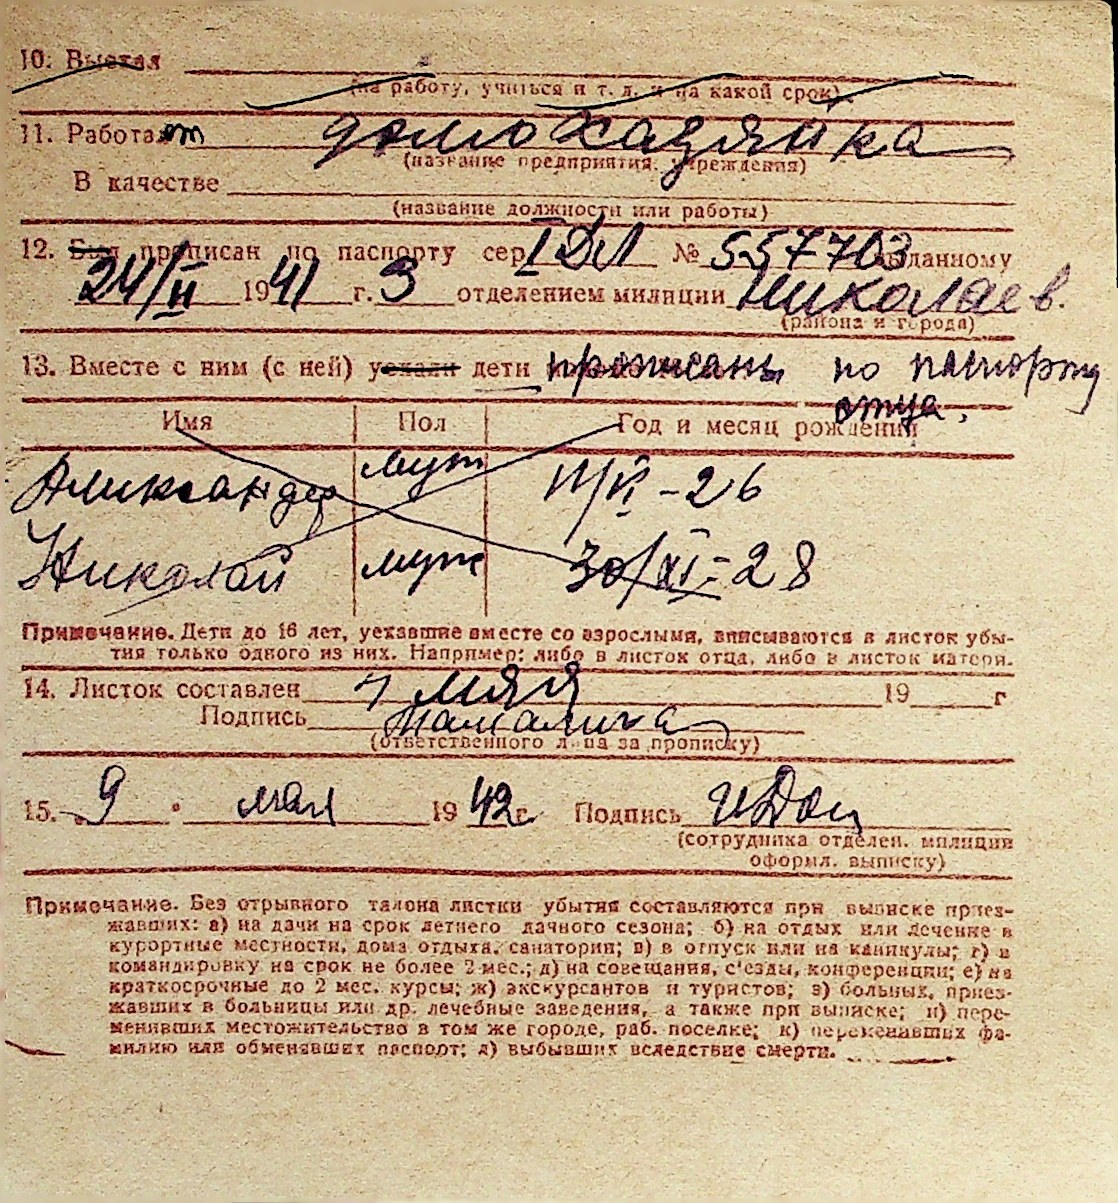 10. Выехал
(на работу, учиться и т. д. и на какой срок)
11. Работает домохадяйка
(название предприятия, учреждения)
В качестве
(название должности или работы)
12. Был прописан по паспорту сер I ДЛ № 557703 выданному
24/II 1941 г. 3 отделением милиции Николаев.
(района и города)
13. Вместе с ним (с ней) уехали дети прописаны по паспорту
отца.
Имя Пол Год и месяц рождения
Александр муж 11/VI - 26
Николай муж 30/XI - 28
Примечание. Дети до 16 лет, уехавшие вместе со взрослыми, вписываются в листок убы-
тия только одного из них. Например: либо в листок отца, либо в листок матери.
14. Листок составлен 7 мая 19 г
Подпись
(ответственного лица за прописку)
15. 9 " мая 1942 г. Подпись
(сотрудника отделен. милиции
оформл. выписку)
Примечание. Без отрывного талона листки убытия составляются при выписке приез-
жавших: а) на дачи на срок летнего дачного сезона; б) на отдых или лечение в
курортные местности, дома отдыха, санатории; в) в отпуск или на каникулы; г) в
командировку на срок не более 2 мес.; д) на совещания, с'езды, конференции; е) на
краткосрочные до 2 мес. курсы; ж) экскурсантов и туристов; з) больных, приез-
жавших в больницы или др. лечебные заведения, а также при выписке; и) пере-
менявших местожительство в том же городе, раб. поселке; к) переменивших фа-
милию или обменявших паспорт; л) выбывших вследствие смерти.